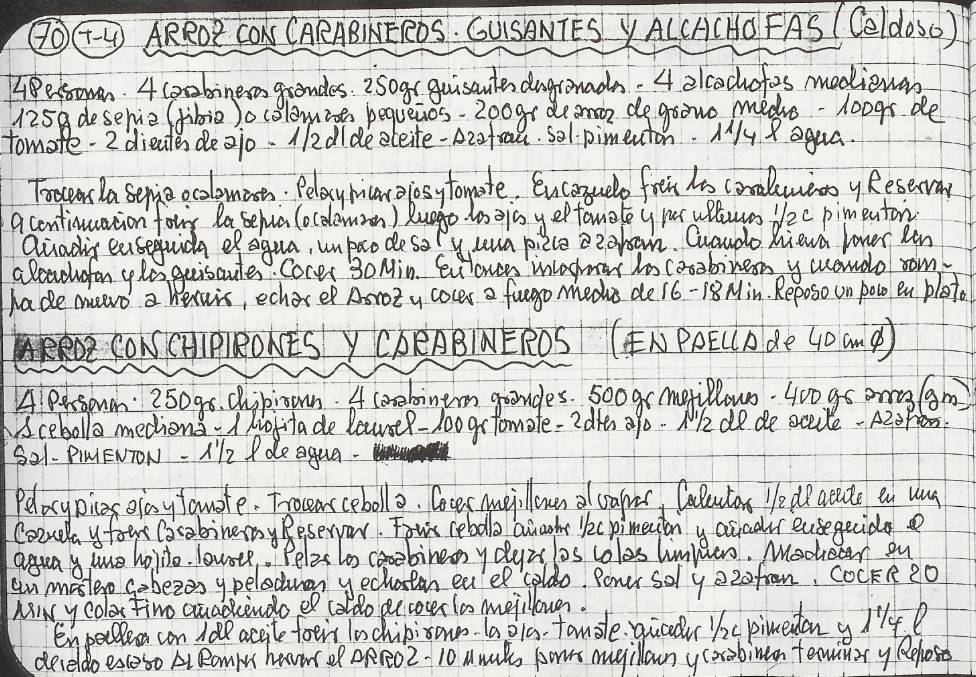 70 T-4 ARROZ CON CARABINEROS. GUISANTES Y ALCACHOFAS (Caldoso)
4 Personas. 4 carabineros grandes. 250gr guisantes desgranados - 4 alcachofas medianas
125g de sepia (jibia) o calamares pequeños - 200gr de arroz de grano medio - 100gr de
tomate - 2 dientes de ajo - 1/2 dl de aceite - Azafran. Sal. pimenton - 1 1/4 l agua.
Trocear la sepia o calamares. Pelar y picar ajos y tomate. En cazuela freir los carabineros y Reservar
a continuacion freir la sepia (o calamares) luego los ajos y el tomate y por ultimo 1/2 c pimenton.
Añadir enseguida el agua, un poco de sal y una pizca azafran. Cuando hierva poner las
alcachofas y los guisantes. Cocer 30 Min. Entonces incorporar los carabineros y cuando rom-
pa de nuevo a hervir, echar el Arroz y cocer a fuego medio de 16 - 18 Min. Reposo un poco en plato
ARROZ CON CHIPIRONES Y CARABINEROS (EN PAELLA de 40 cm ϕ)
4 Personas. 250gr. chipirones. 4 carabineros grandes. 500gr mejillones - 400 gr arroz (gm)
1 cebolla mediana - 1 hojita de laurel - 100 gr tomate - 2 dtes ajo - 1 1/2 dl de aceite - Azafran.
Sal - PIMENTON - 1 1/2 l de agua -
Pelar y picar ajos y tomate. Trocear cebolla. Cocer mejillones al vapor. Calentar 1/2 dl aceite en una
Cazuela y freir Carabineros y Reservar. Freir cebolla añadir 1/2 c pimenton y añadir ensegida el
agua y una hojita laurel. Pelar los carabineros y dejar las colas limpias. Machacar en
un mortero cabezas y peladuras y echarlas en el caldo. Poner sal y azafran. COCER 20
MIN y colar Fino añadiendo el caldo de cocer los mejillones.
En paellera con 1 dl aceite freir los chipirones - los ajos - tomate. añadir 1/2 c pimenton y 1 1/4 l
de caldo escaso Al Romper hervor el ARROZ - 10 minutos poner mejillones y carabineros terminar y Reposo